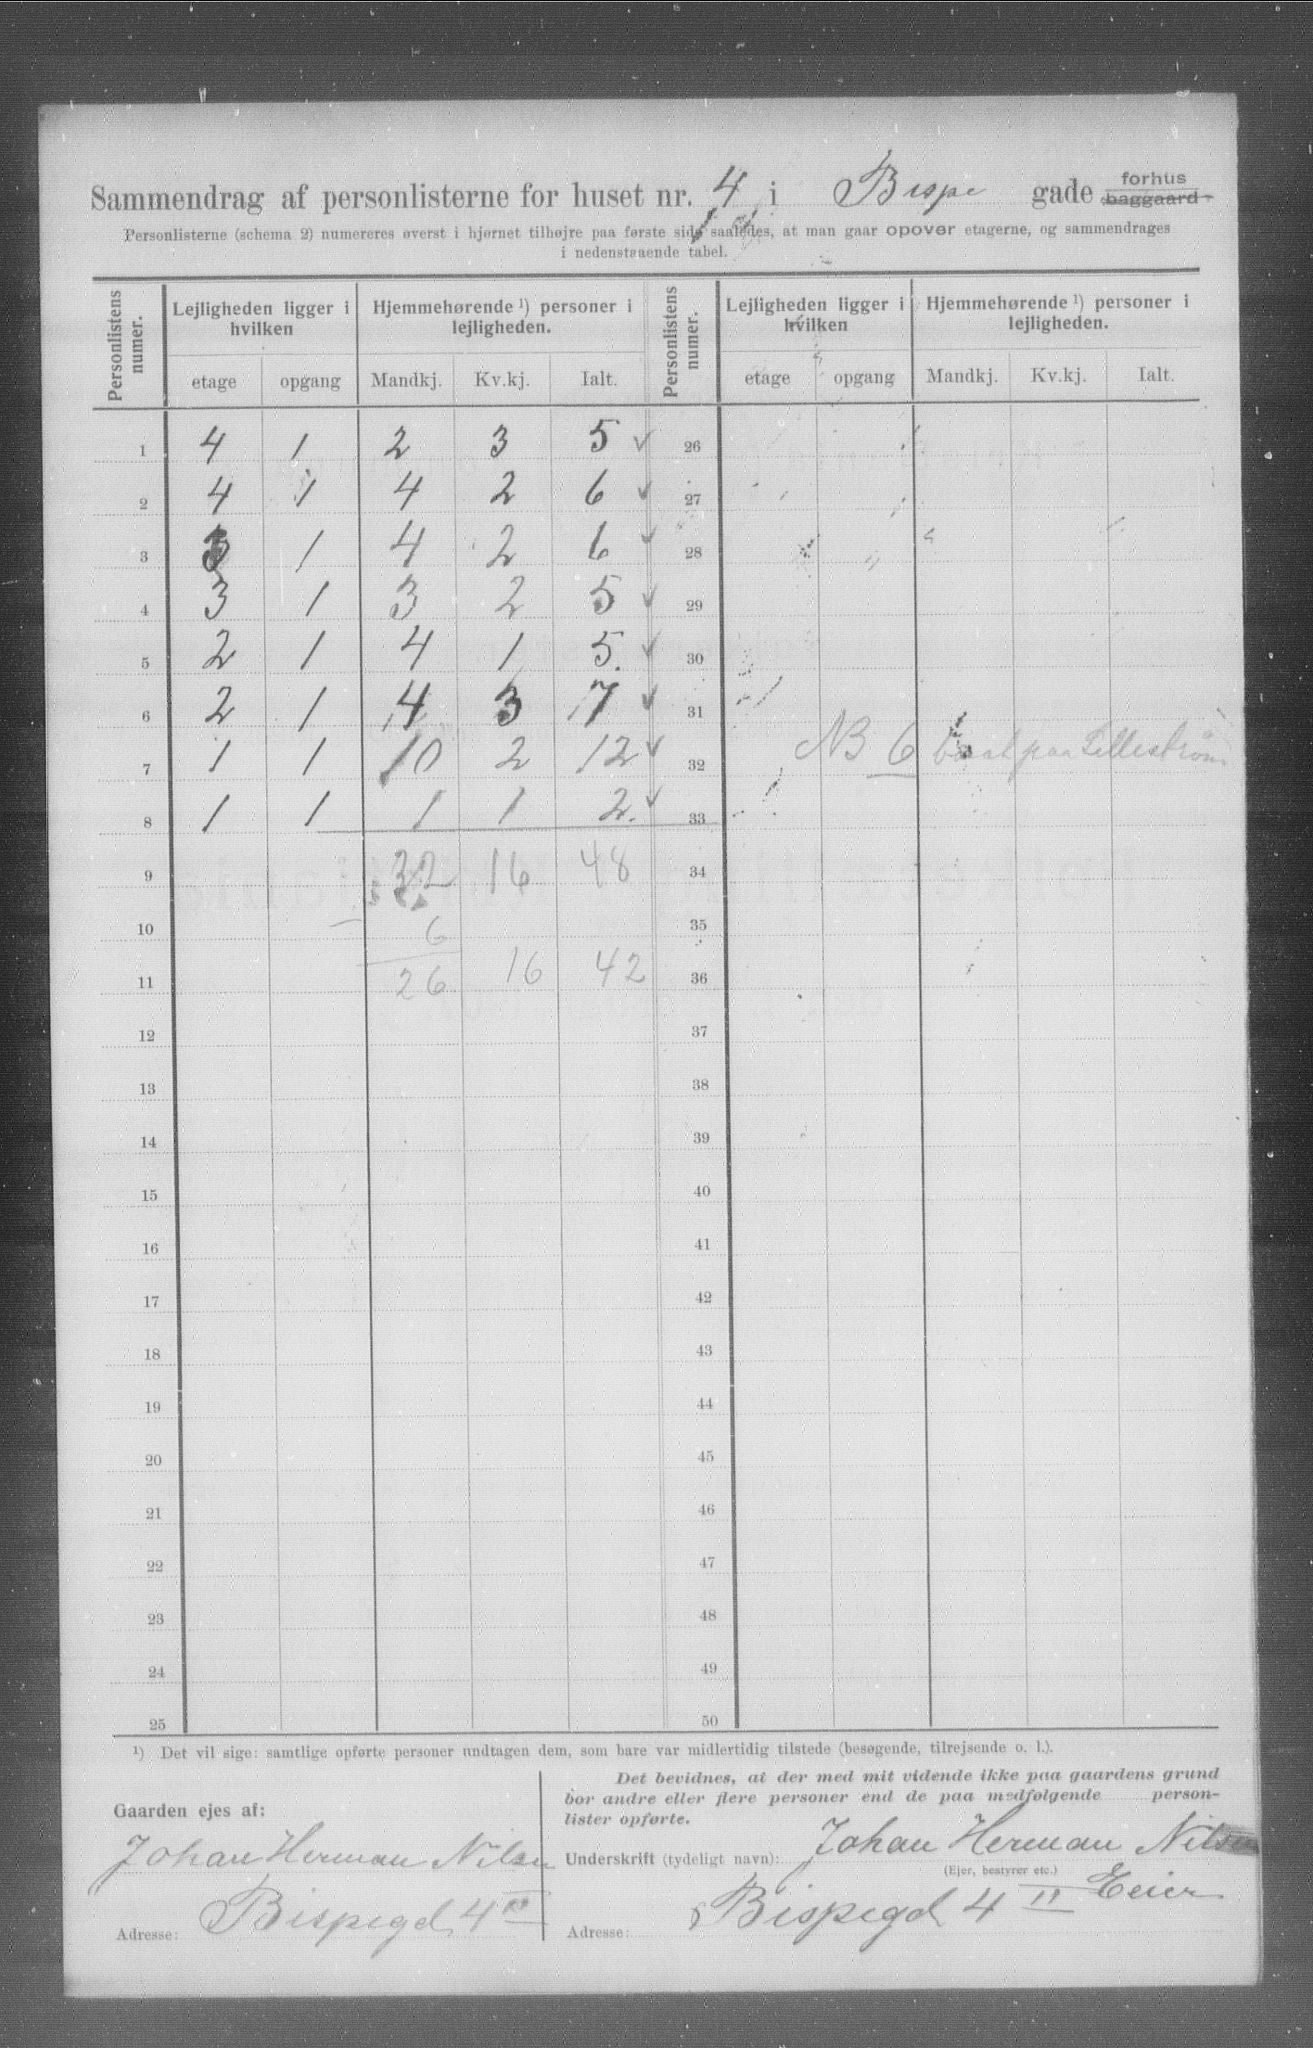 Sammendrag af personlisterne for huset nr. 4 i Bispe gade forhus baggaard
Personlisterne (schema 2) numereres øverst i hjørnet tilhøjre paa første side saaledes, at man gaar opover etagerne, og sammendrages
i nedenstaaende tabel.
Personlistens numer. Lejligheden ligger i hvilken Hjemmehørende ¹) personer i lejligheden. Personlistens numer. Lejligheden ligger i hvilken Hjemmehørende ¹) personer i lejligheden.
etage opgang Mandkj. Kv.kj. Ialt. etage opgang Mandkj. Kv.kj. Ialt.
1 4 1 2 3 5 ✓ 26
2 4 1 4 2 6 ✓ 27
3 3 1 4 2 6 ✓ 28
4 3 1 3 2 5 ✓ 29
5 2 1 4 1 5. ✓ 30
6 2 1 4 3 7 ✓ 31
7 1 1 10 2 12 ✓ 32 NB 6 bosat paa Lillestrøm
8 1 1 1 1 2. ✓ 33
9 32 16 48 34
10 6 35
11 26 16 42 36
12 37
13 38
14 39
15 40
16 41
17 42
18 43
19 44
20 45
21 46
22 47
23 48
24 49
25 50
¹) Det vil sige: samtlige opførte personer undtagen dem, som bare var midlertidig tilstede (besøgende, tilrejsende o. l.).
Gaarden ejes af:
Johan Herman Nilsen
Adresse: Bispegd 4 II
Det bevidnes, at der med mit vidende ikke paa gaardens grund
bor andre eller flere personer end de paa medfølgende person-
lister opførte.
Underskrift (tydeligt navn): Johan Herman Nilsen
(Ejer, bestyrer etc.) Eier
Adresse: Bispegd 4 II